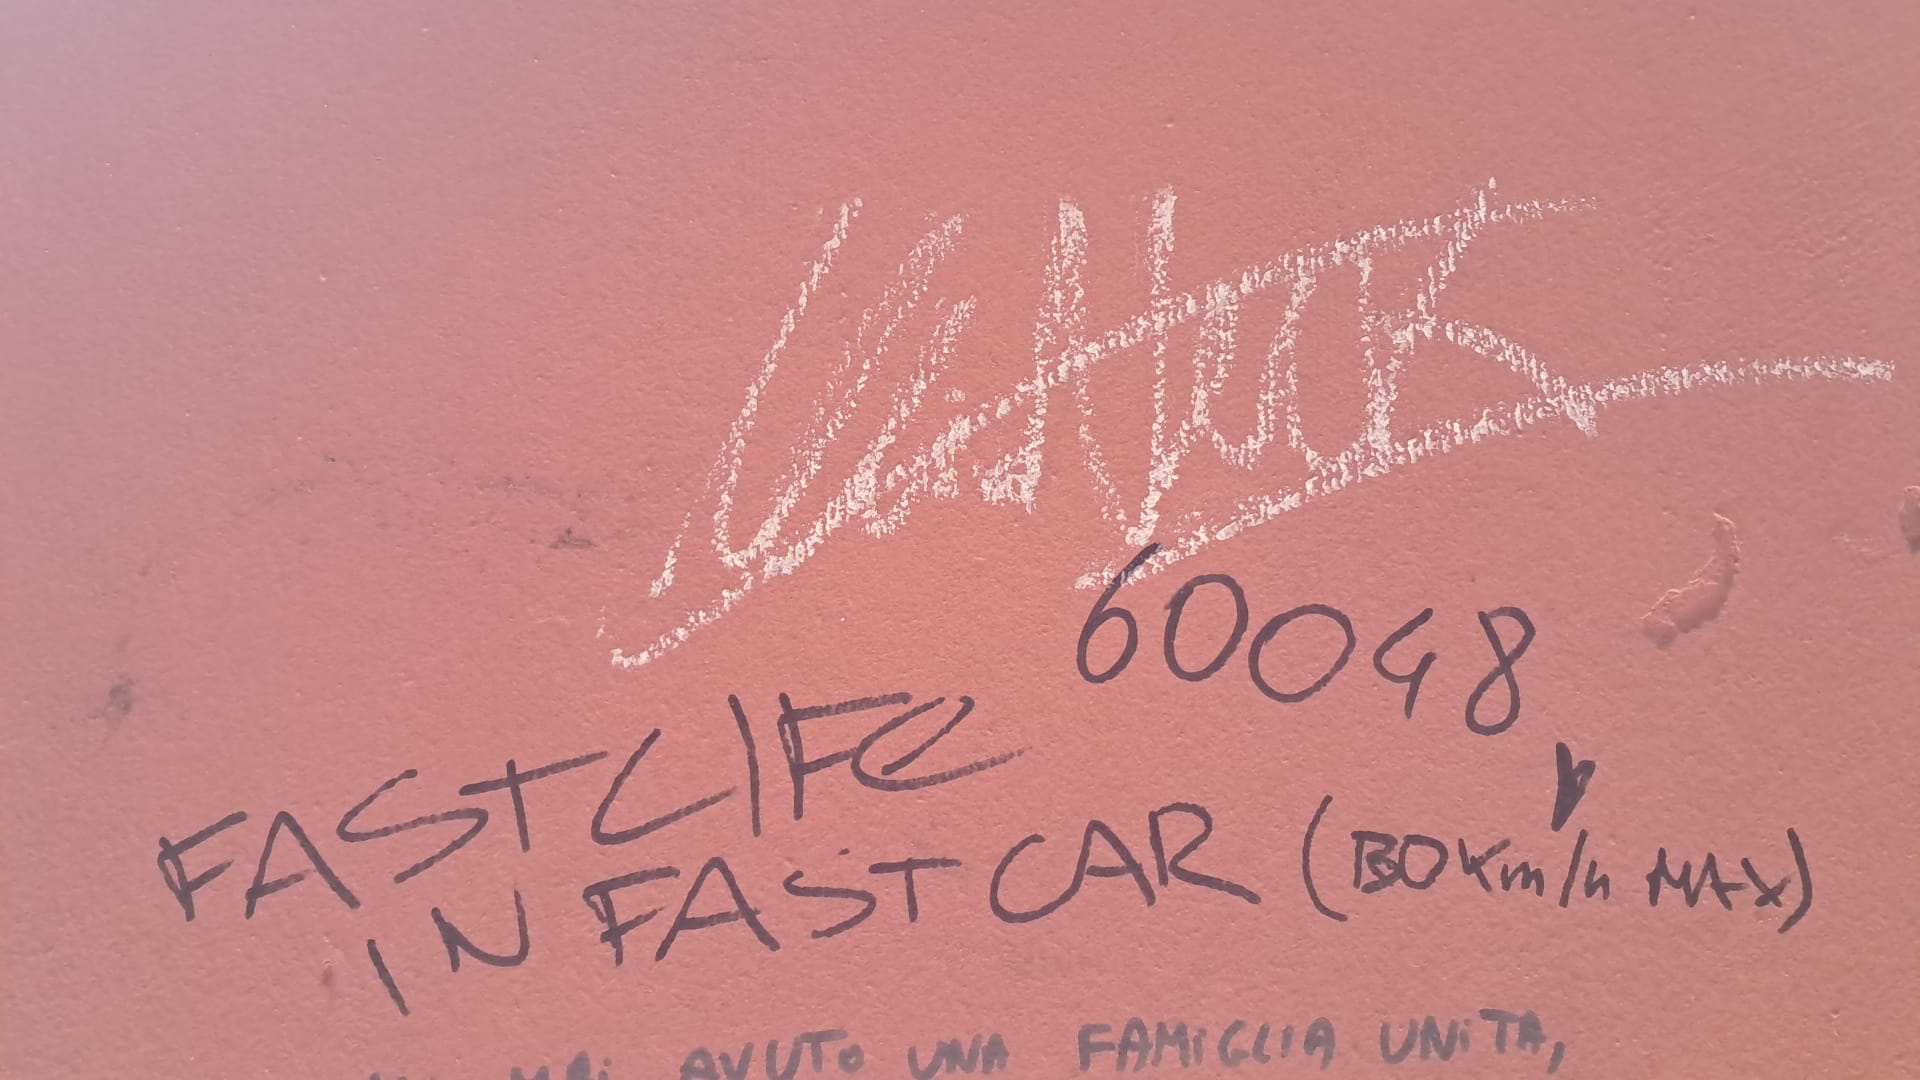 60048
FASTLIFE
IN FAST CAR (130 Km/h MAX)
MAI AVUTO UNA FAMIGLIA UNITA,